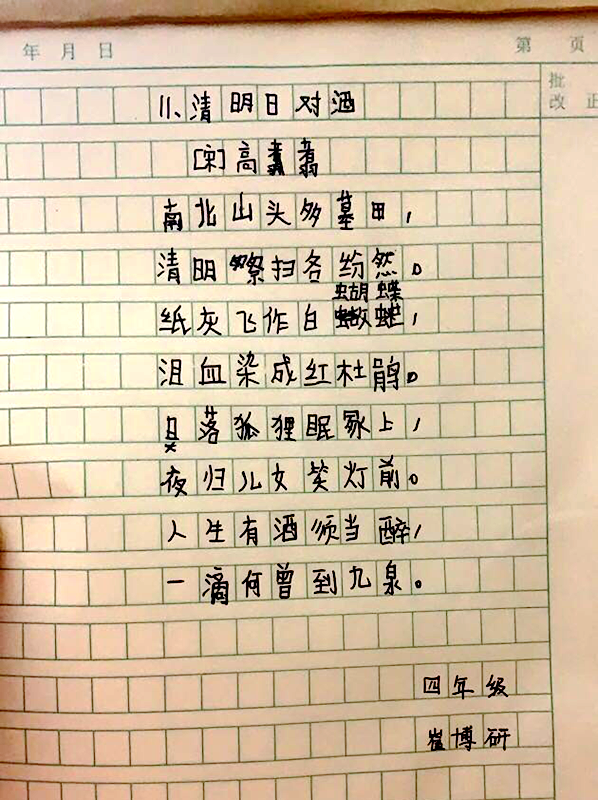 年 月 日
第 页
批
改 正
11、清明日对酒
[宋]高翥
南北山头多墓田,
清明祭扫各纷然。
蝴蝶
纸灰飞作白
泪血染成红杜鹃。
日落狐狸眠冢上,
夜归儿女笑灯前。
人生有酒须当醉,
一滴何曾到九泉。
四年级
崔博研